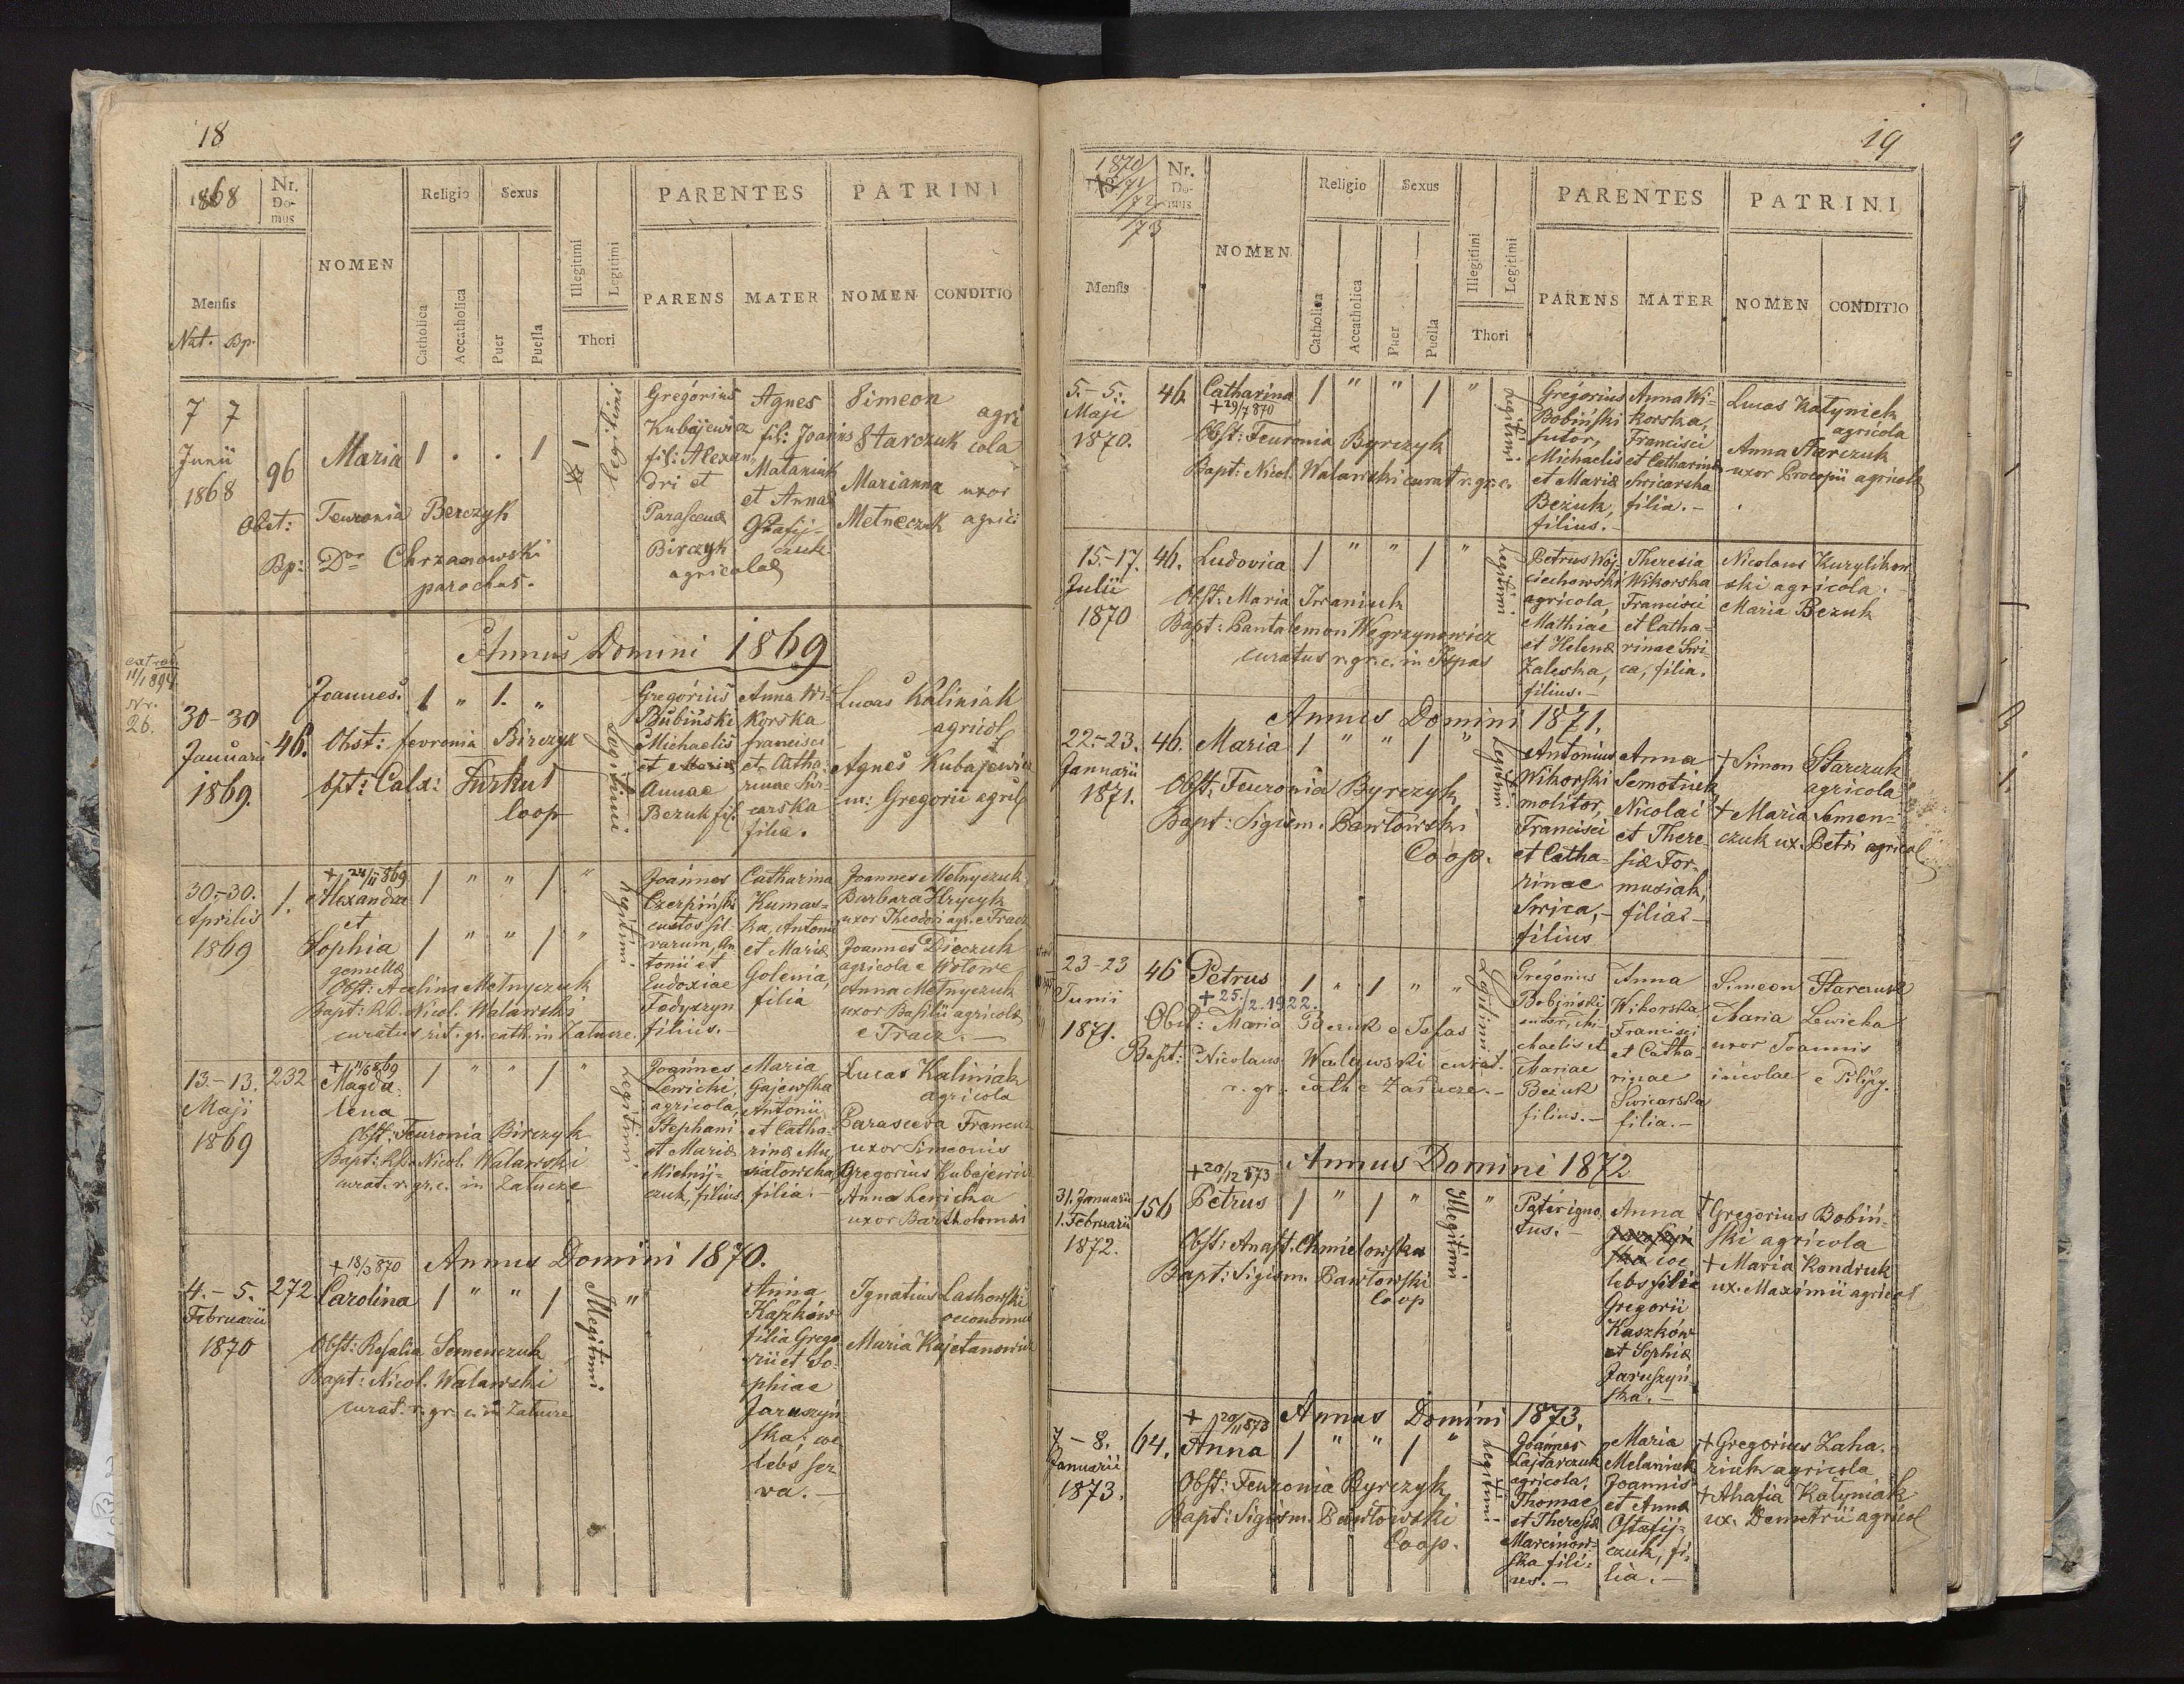 18
1868
Nr. Domus
NOMEN
Religio
Sexus
Illegitimi
Legitimi
PARENTES
PATRINI
Mensis
Nat. Bp.
Catholica
Accatholica
Puer
Puella
Thori
PARENS
MATER
NOMEN
CONDITIO
7 7
Junii
1868
96
Maria 1 . . 1
Obst: Feuronia Berczyk
Bp: Chrzanowski
parochus.
legitimi
Gregorius
Kubajewicz
fil: Alexan
dri et
Parasceua
Birczyk
agricolae
Agnes
fil: Joannis
Mataniuk
et Annae
Ostafij-
czuk
Simeon
Starczuk
agri
cola
Marianna uxor
Metneczuk agrici
Annus Domini 1869
extrad
11/1 894
Nr.
26.
30-30
Januarii
1869.
46.
Joannes. 1 " 1. "
Obst: fevronia Birczyk
bpt: Calx: Turkut
Coop
Legitimi
Gregorius
Bubinski
Michaelis
et Maria
Annae
Bezuk fil.
Anna Wi-
korska
francisci
et Catha-
rinae Swi-
carska
filia.
Lucas Kaliniak
agricol
Agnes Kubajewicz
ux: Gregorii agril
30-30.
Aprilis
1869
1.
+ 24/11 869
Alexandra 1 " " 1 "
et
Sophia 1 " " 1 "
gemellae
Obst: Acelina Metnyczuk
Bapt: Nicol. Walawski
curatus rit. gr. cath. in Zatucze.
Legitimi
Joannes
Czerpiński
custos sil-
varum, An
tonii et
Eudoxiae
Fedyszyn
filius.-
Catharina
Kumas-
ka, Antonii
et Mariae
Golenia,
filia
Joannes Metnyczuk
Barbara Hrycyk
uxor Theodori agr. e Tracz
Joannes Dieczuk
agricola e Wotowe
Anna Metnyczuk
uxor Basilii agricolae
e Tracz.-
13.-13.
Maji
1869
232
+ 14/6 869
Magda- 1 " " 1 "
lena
Obst: Feuronia Birczyk
Bapt: Nicol. Walawski
curat. r. gr. c. in Zatucze
Legitimi
Joannes
Lewicki,
agricola,
Stephani
et Mariae
Mielnij-
czuk, filius
Maria
Gajewska
Antonii
et Catha-
rinae Mu-
siatowska,
filia.-
Lucas Kaliniak
agricola
Parasceva Francuz
uxor Simeonis
Gregorius Kubajewicz
Anna Lewicka
uxor Bartholomaei
Annus Domini 1870.
4.-5.
Februarii
1870
272
+ 18/3 870
Carolina 1 " " 1 "
Obst: Rosalia Semenczuk
Bapt: Nicol. Walawski
curat. r. gr. c. in Zatucze
Illegitimi
Anna
Kaszków
filia Grego
rii et So-
phiae
Jaruszyń-
ska, coe
lebs ser
va.-
Ignatius Lashowski
oeconomus
Maria Kajetanowicz
19
1870/
71/
72/
73
Nr. Domus
NOMEN
Religio
Sexus
Illegitimi
Legitimi
PARENTES
PATRINI
Mensis
Catholica
Accatholica
Puer
Puella
Thori
PARENS
MATER
NOMEN
CONDITIO
5.-5.
Maji
1870.
46.
Catharina 1 " " 1 "
+ 29/7 870
Obst: Feuronia Byrczyk
Bapt: Nicol. Walawski curat. r. gr. c.
Legitimi
Gregorius
Bobiński
sutor,
Michaelis
et Mariae
Bezuk,
filius.-
Anna Wi-
korska,
Francisci
et Catharinae
Swicarska
filia.-
Lucas Katyniek
agricola
Anna Starczuk
uxor Procopii agricolae
15.-17.
Julii
1870
46.
Ludovica 1 " " 1 "
Obst: Maria Iwaniuk
Bapt: Pantalemon Węgrzynowicz
curatus r. gr. c. in Ispas
Legitimi
Petrus Woj-
ciechowski
agricola,
Mathiae
et Helenae
Zaleska,
filius.-
Theresia
Wikorska
Francisci
et Catha-
rinae Swi-
ca, filia.
Nicolaus Kurylikow
ski agricola.
Maria Bezuk
Annus Domini 1871.
22.-23.
Januarii
1871.
46.
Maria 1 " " 1 "
Obst: Feuronia Byrczyk
Bapt: Sigism. Pawlowski
Coop.
Legitimi
Antonius
Wikorski
molitor,
Francisci
et Catha-
rinae
Swica,-
filius
Anna
Semotiuk
Nicolai
et There-
siae For-
musiak,
filia.-
+ Simon Starczuk
agricola
+ Maria Semen-
czuk ux. Petri agricol
23-23
Junii
1871.
46
Petrus 1 " 1 " "
+ 25./2. 1922.
Obst: Maria Bezuk e Ispas
Bapt: Nicolaus Walawski curat.
r. gr. cath e Zatucze.-
Legitimi
Gregorius
Bobiński
sutor, Mi-
chaelis et
Mariae
Bezuk
filius.-
Anna
Wikorska,
Francisci
et Catha-
rinae
Swicarska
filia.-
Simeon Starczuk
Maria Lewicka
uxor Joannis
incolae e Pilipy.
Annus Domini 1872
31. Januarii
1. Februarii
1872.
156
+ 20/12 873
Petrus 1 " 1 " "
Obst: Anast. Chmielowska
Bapt: Sigism. Pawlowski
Coop
Illegitimi
Pater igno-
tus.-
Anna
coe
lebs filia
Gregorii
Kaszków
et Sophiae
Jaruszyń-
ska.-
+ Gregorius Bobiń-
ski agricola
+ Maria Kondruk
ux. Maximii agricol
Annus Domini 1873.
7-8.
Januarii
1873.
64.
+ 20/11 873
Anna 1 " " 1 "
Obst: Feuronia Byrczyk
Bapt: Sigism. Pawlowski
Coop.
Legitimi
Joannes
Lajtarczuk
agricola,
Thomae
et Theresiae
Marcinow-
ska fili-
us.-
Maria
Melaniuk
Joannis
et Annae
Ostafij-
czuk, fi-
lia.-
+ Gregorius Zaha-
riuk agricola
+ Ahafia Katyniak
ux. Demetrii agricol